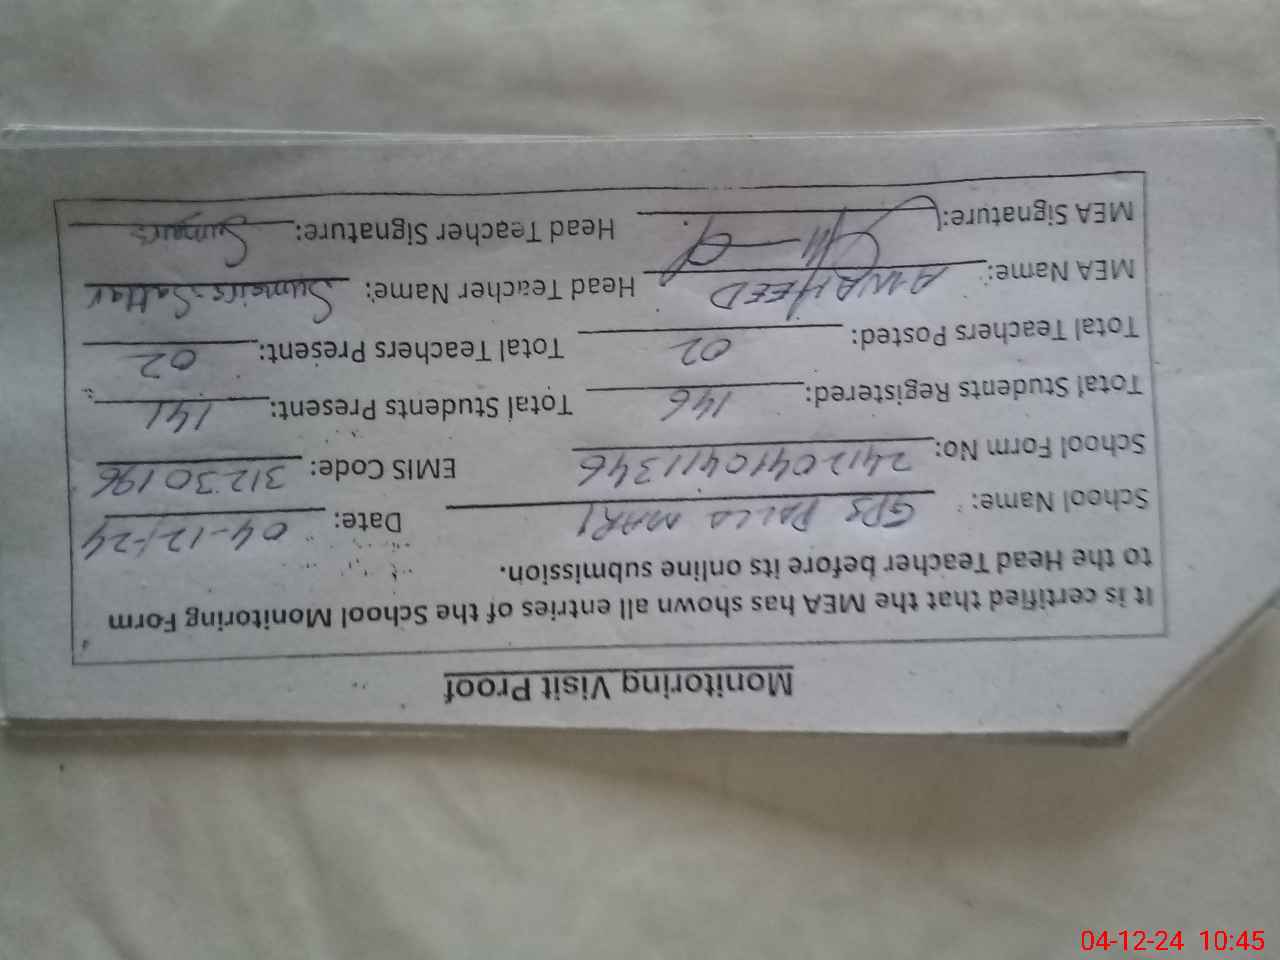 Monitoring Visit Proof
It is certified that the MEA has shown all entries of the School Monitoring Form
to the Head Teacher before its online submission.
School Name: GPS PALLA MARI Date: 04-12-24
School Form No: 24120410411346 EMIS Code: 31230196
Total Students Registered: 146 Total Students Present: 141
Total Teachers Posted: 02 Total Teachers Present: 02
MEA Name: A WAHEED Head Teacher Name: Sumaira Sattar
MEA Signature: Head Teacher Signature: Sumaira
04-12-24 10:45